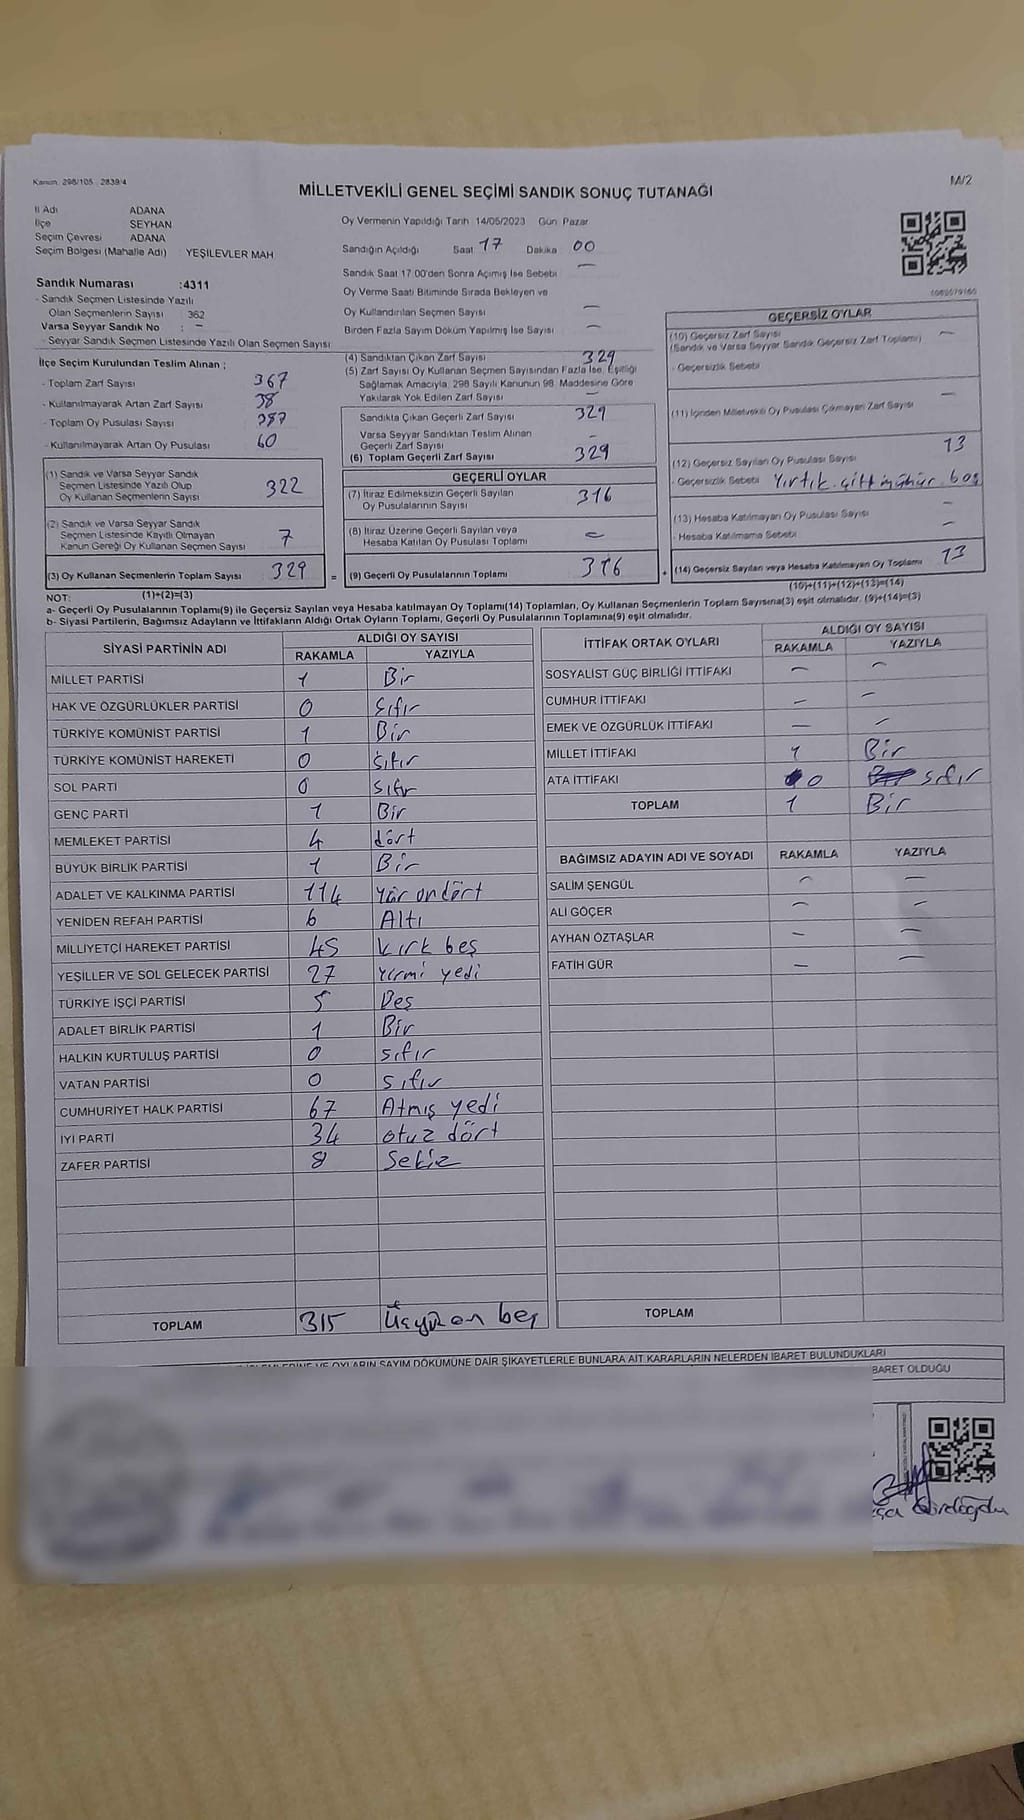 Kanun: 298/105 , 2839/4
M/2
MİLLETVEKİLİ GENEL SEÇİMİ SANDIK SONUÇ TUTANAĞI
İl Adı ADANA
İlçe SEYHAN
Seçim Çevresi ADANA
Seçim Bölgesi (Mahalle Adı) YEŞİLEVLER MAH
Sandık Numarası :4311
- Sandık Seçmen Listesinde Yazılı
Olan Seçmenlerin Sayısı 362
Varsa Seyyar Sandık No : -
- Seyyar Sandık Seçmen Listesinde Yazılı Olan Seçmen Sayısı
İlçe Seçim Kurulundan Teslim Alınan ;
- Toplam Zarf Sayısı 367
- Kullanılmayarak Artan Zarf Sayısı 38
- Toplam Oy Pusulası Sayısı 387
- Kullanılmayarak Artan Oy Pusulası 60
(1) Sandık ve Varsa Seyyar Sandık
Seçmen Listesinde Yazılı Olup
Oy Kullanan Seçmenlerin Sayısı 322
(2) Sandık ve Varsa Seyyar Sandık
Seçmen Listesinde Kayıtlı Olmayan
Kanun Gereği Oy Kullanan Seçmen Sayısı 7
(3) Oy Kullanan Seçmenlerin Toplam Sayısı 329 =
(1)+(2)=(3)
Oy Vermenin Yapıldığı Tarih : 14/05/2023 Gün: Pazar
Sandığın Açıldığı Saat 17 Dakika 00
Sandık Saat 17:00'den Sonra Açılmış İse Sebebi -
Oy Verme Saati Bitiminde Sırada Bekleyen ve
Oy Kullandırılan Seçmen Sayısı -
Birden Fazla Sayım Döküm Yapılmış İse Sayısı -
(4) Sandıktan Çıkan Zarf Sayısı 329
(5) Zarf Sayısı Oy Kullanan Seçmen Sayısından Fazla İse, Eşitliği
Sağlamak Amacıyla, 298 Sayılı Kanunun 98. Maddesine Göre
Yakılarak Yok Edilen Zarf Sayısı -
Sandıkta Çıkan Geçerli Zarf Sayısı 329
Varsa Seyyar Sandıktan Teslim Alınan
Geçerli Zarf Sayısı -
(6) Toplam Geçerli Zarf Sayısı 329
GEÇERLİ OYLAR
(7) İtiraz Edilmeksizin Geçerli Sayılan
Oy Pusulalarının Sayısı 316
(8) İtiraz Üzerine Geçerli Sayılan veya
Hesaba Katılan Oy Pusulası Toplamı -
(9) Geçerli Oy Pusulalarının Toplamı 316 +
GEÇERSİZ OYLAR
(10) Geçersiz Zarf Sayısı -
(Sandık ve Varsa Seyyar Sandık Geçersiz Zarf Toplamı)
- Geçersizlik Sebebi
(11) İçinden Milletvekili Oy Pusulası Çıkmayan Zarf Sayısı -
(12) Geçersiz Sayılan Oy Pusulası Sayısı 13
- Geçersizlik Sebebi Yırtık. çift mühür. boş
(13) Hesaba Katılmayan Oy Pusulası Sayısı -
- Hesaba Katılmama Sebebi -
(14) Geçersiz Sayılan veya Hesaba Katılmayan Oy Toplamı 13
(10)+(11)+(12)+(13)=(14)
NOT:
a- Geçerli Oy Pusulalarının Toplamı(9) ile Geçersiz Sayılan veya Hesaba katılmayan Oy Toplamı(14) Toplamları, Oy Kullanan Seçmenlerin Toplam Sayısına(3) eşit olmalıdır. (9)+(14)=(3)
b- Siyasi Partilerin, Bağımsız Adayların ve İttifakların Aldığı Ortak Oyların Toplamı, Geçerli Oy Pusulalarının Toplamına(9) eşit olmalıdır.
SİYASİ PARTİNİN ADI ALDIĞI OY SAYISI
RAKAMLA YAZIYLA
MİLLET PARTİSİ 1 Bir
HAK VE ÖZGÜRLÜKLER PARTİSİ 0 Sıfır
TÜRKİYE KOMÜNİST PARTİSİ 1 Bir
TÜRKİYE KOMÜNİST HAREKETİ 0 Sıfır
SOL PARTİ 0 Sıfır
GENÇ PARTİ 1 Bir
MEMLEKET PARTİSİ 4 dört
BÜYÜK BİRLİK PARTİSİ 1 Bir
ADALET VE KALKINMA PARTİSİ 114 Yüz on dört
YENİDEN REFAH PARTİSİ 6 Altı
MİLLİYETÇİ HAREKET PARTİSİ 45 kırk beş
YEŞİLLER VE SOL GELECEK PARTİSİ 27 yirmi yedi
TÜRKİYE İŞÇİ PARTİSİ 5 Beş
ADALET BİRLİK PARTİSİ 1 Bir
HALKIN KURTULUŞ PARTİSİ 0 sıfır
VATAN PARTİSİ 0 sıfır
CUMHURİYET HALK PARTİSİ 67 Atmış yedi
İYİ PARTİ 34 otuz dört
ZAFER PARTİSİ 8 Sekiz
TOPLAM 315 Üçyüz on beş
İTTİFAK ORTAK OYLARI ALDIĞI OY SAYISI
RAKAMLA YAZIYLA
SOSYALİST GÜÇ BİRLİĞİ İTTİFAKI - -
CUMHUR İTTİFAKI - -
EMEK VE ÖZGÜRLÜK İTTİFAKI - -
MİLLET İTTİFAKI 1 Bir
ATA İTTİFAKI 0 sıfır
TOPLAM 1 Bir
BAĞIMSIZ ADAYIN ADI VE SOYADI RAKAMLA YAZIYLA
SALİM ŞENGÜL - -
ALİ GÖÇER - -
AYHAN ÖZTAŞLAR - -
FATİH GÜR - -
TOPLAM
VE OYLARIN SAYIM DÖKÜMÜNE DAİR ŞİKAYETLERLE BUNLARA AİT KARARLARIN NELERDEN İBARET BULUNDUKLARI
BARET OLDUĞU